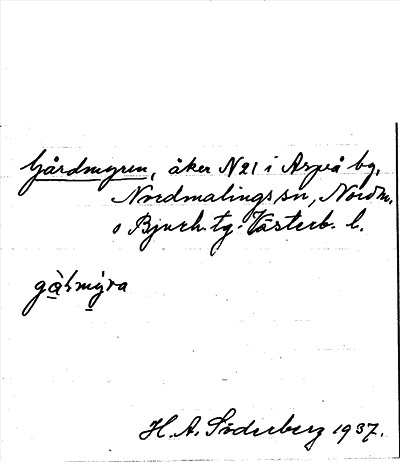 Gårdmyren, åker N21 i Aspeå by,
Nordmalings sn, Nordm.
o Bjurh. tg. Västerb. l.
H. A. Söderberg 1937.